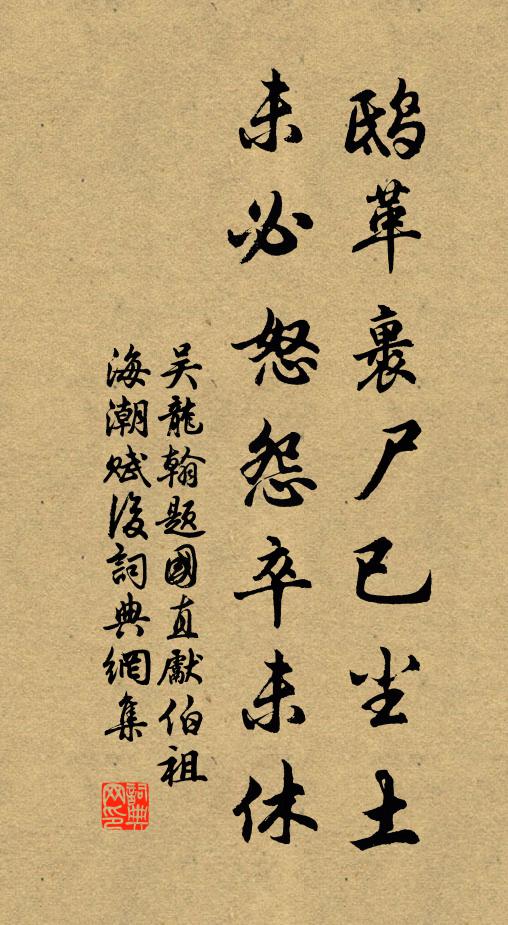 鴟革裹尸已尘土
未必怒怨卒未休
吴龍翰題國直獻伯祖
海潮赋後詞典網集
詞典网印